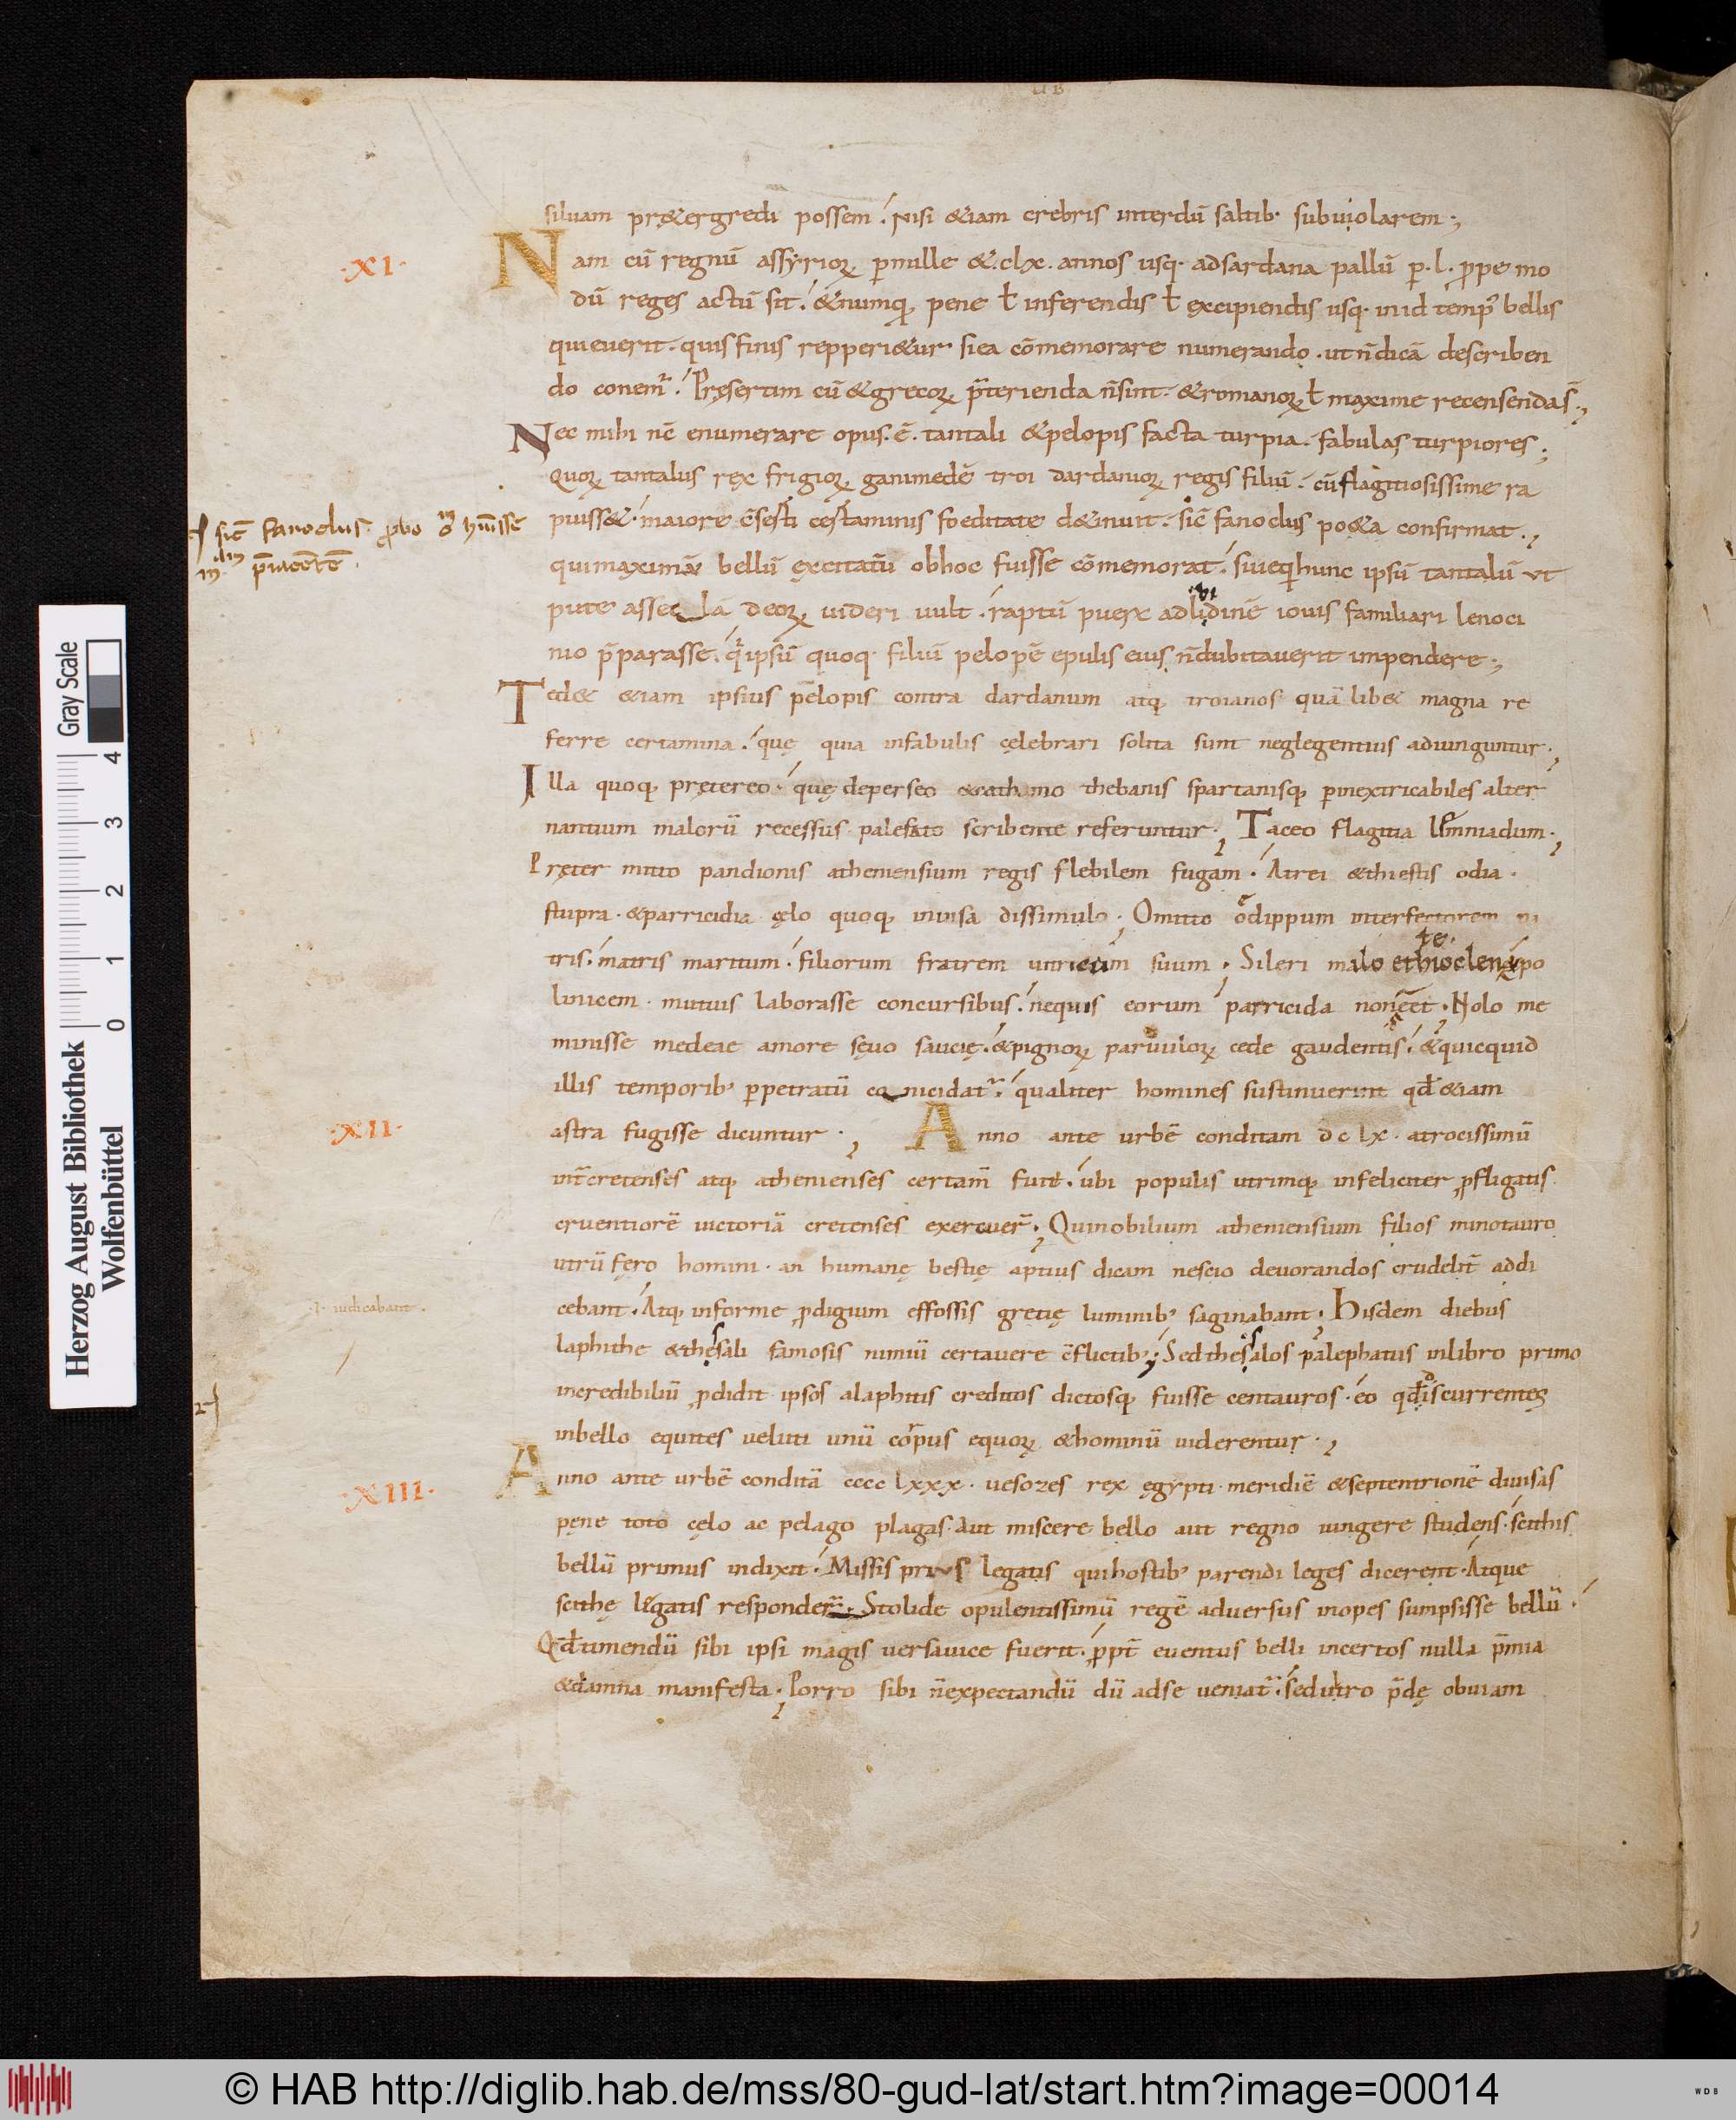 siluam pręt&ergredi possem. Nisi &iam crebris interdū saltib· subuiolarem·,
·XI·
Nam cū regnū assyrioꝝ ꝑmille &.clx. annos usq· adsardana pallū ꝑ.l. ꝓpe mo
dū reges actū sit. &numqꝫ pene ł inferendis ł excipiendis usq· inid temp᾿ bellis
quieuerit. quis finis repperi&ur siea cōmemorare numerando. ut n̄dicā describen
do conem᷑. Pręsertim cū &grecoꝝ p̄terienda n̄sint. &romanoꝝ ł maxime recensendas̄·,
Nec mihi nc̄ enumerare opus. ē. tantali &pelopis facta turpia. fabulas turpiores·,
Quoꝝ tantalus rex frigioꝝ ganimedē troi dardanioꝝ regis filiū. cū flagitiosissime ra
puiss&. maiore c̄sesti certaminis foeditate d&inuit. sic̄ fanoclus po&a confirmat.,
sic̄ fanoclus ꝓbo
qui maximū bellū excitatū obhoc fuisse cōmemorat. siueqꝫhunc ipsū tantalū ut
pute assec lā deoꝝ uideri uult. raptū puerū adlibidinē iouis familiari lenoci
nio p̄parasse. q᷑ ipsū quoq· filiū pelopē epulis eius n̄dubitauerit impendere·,
Ted& &iam ipsius pelopis contra dardanum atqꝫ troianos quā lib& magna re
ferre certamina. quę quia infabulis celebrari solita sunt neglegentius adiunguntur·,
Illa quoqꝫ prętereo. quę deperseo &cathamo thebanis spartanisqꝫ ꝑinextricabiles alter
nantium malorū recessus palefato scribente referuntur·, Taceo flagitia lemniadum·,
Pręter mitto pandionis atheniensium regis flebilem fugam. Atrei &thiestis odia.
stupra. &parricidia cęlo quoqꝫ inuisa dissimulo·, Omitto oedippum interfectorem pa
tris. matris maritum. filiorum fratrem uitricum suum. Sileri malo ethioclen atqꝫ po
linicem. mutuis laborasse concursibus. nequis eorum parricida non eēt. Nolo me
minisse medeae amore sęuo saucię. &pignorꝝ paruuloꝝ cede gaudentis. &quicquid
illis temporib᾿ ꝑpetratū conicidat᷑. qualiter homines sustinuerint qd̄ &iam
astra fugisse dicuntur·,
·XII·
Anno ante urbē conditam dclx. atrocissimū
int̄cretenses atqꝫ athenienses certam̄ fuit. ubi populis utrimqꝫ infeliciter ꝓfligatis
cruentiorē uictoriā cretenses exercuer̄. Qui nobilium atheniensium filios minotauro
utrū fero homini. an humanę bestię aptius dicam nescio deuorandos crudelit̄ addi
·i· iudicabant.
cebant. Atqꝫ informe ꝓdigium effossis gretię luminib᾿ saginabant. Hisdem diebus
laphithe &thessali famosis nimiū certauere c̄flictib᾿. Sed thessalos palephatus inlibro primo
incredibiliū ꝓdidit ipsos alaphitis creditos dictosqꝫ fuisse centauros. eo qd̄ discurrentes
inbello equites ueluti unū corpus equoꝝ &hominū uiderentur·,
·XIII·
Anno ante urbē conditā cccclxxx. uesozes rex ęgypti meridiē &septentrionē diuisas
pęne toto cęlo ac pelago plagas. aut miscere bello aut regno iungere studens. scithis
bellū primus indixit. Missis prius legatis qui hostib᾿ parendi leges dicerent. Atque
scithę legatis responder̄. Stolide opulentissimū regē aduersus inopes sumpsisse bellū.
Qd̄timendū sibi ipsi magis uersauice fuerit. ꝓpt̄ euentus belli incertos nulla p̄mia
&damna manifesta. Porro sibi n̄expectandū dū adse ueniat᷑. sed ultro p̄dę obuiam
Herzog August Bibliothek
Wolfenbüttel
Gray Scale
0 1 2 3 4
© HAB http://diglib.hab.de/mss/80-gud-lat/start.htm?image=00014
WDB